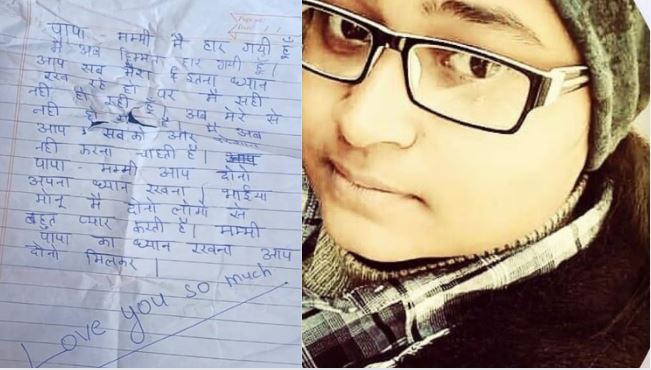 पापा - मम्मी मैं हार गयी हूँ
मैं अब हिम्मत हार गयी हूँ।
आप सब मेरा इतना ध्यान
रख रहे हो पर मैं सही
नही हो रही हूँ अब मेरे से
नही हो है। मैं अब
आप सबको और
नही करना चाहती हूँ।
पापा - मम्मी आप दोनो
अपना ध्यान रखना। भाईया
मोनू मैं दोनो लोगो से
बहुत प्यार करती हूँ। मम्मी
पापा का ध्यान रखना आप
दोनो मिलकर।
Love you so much